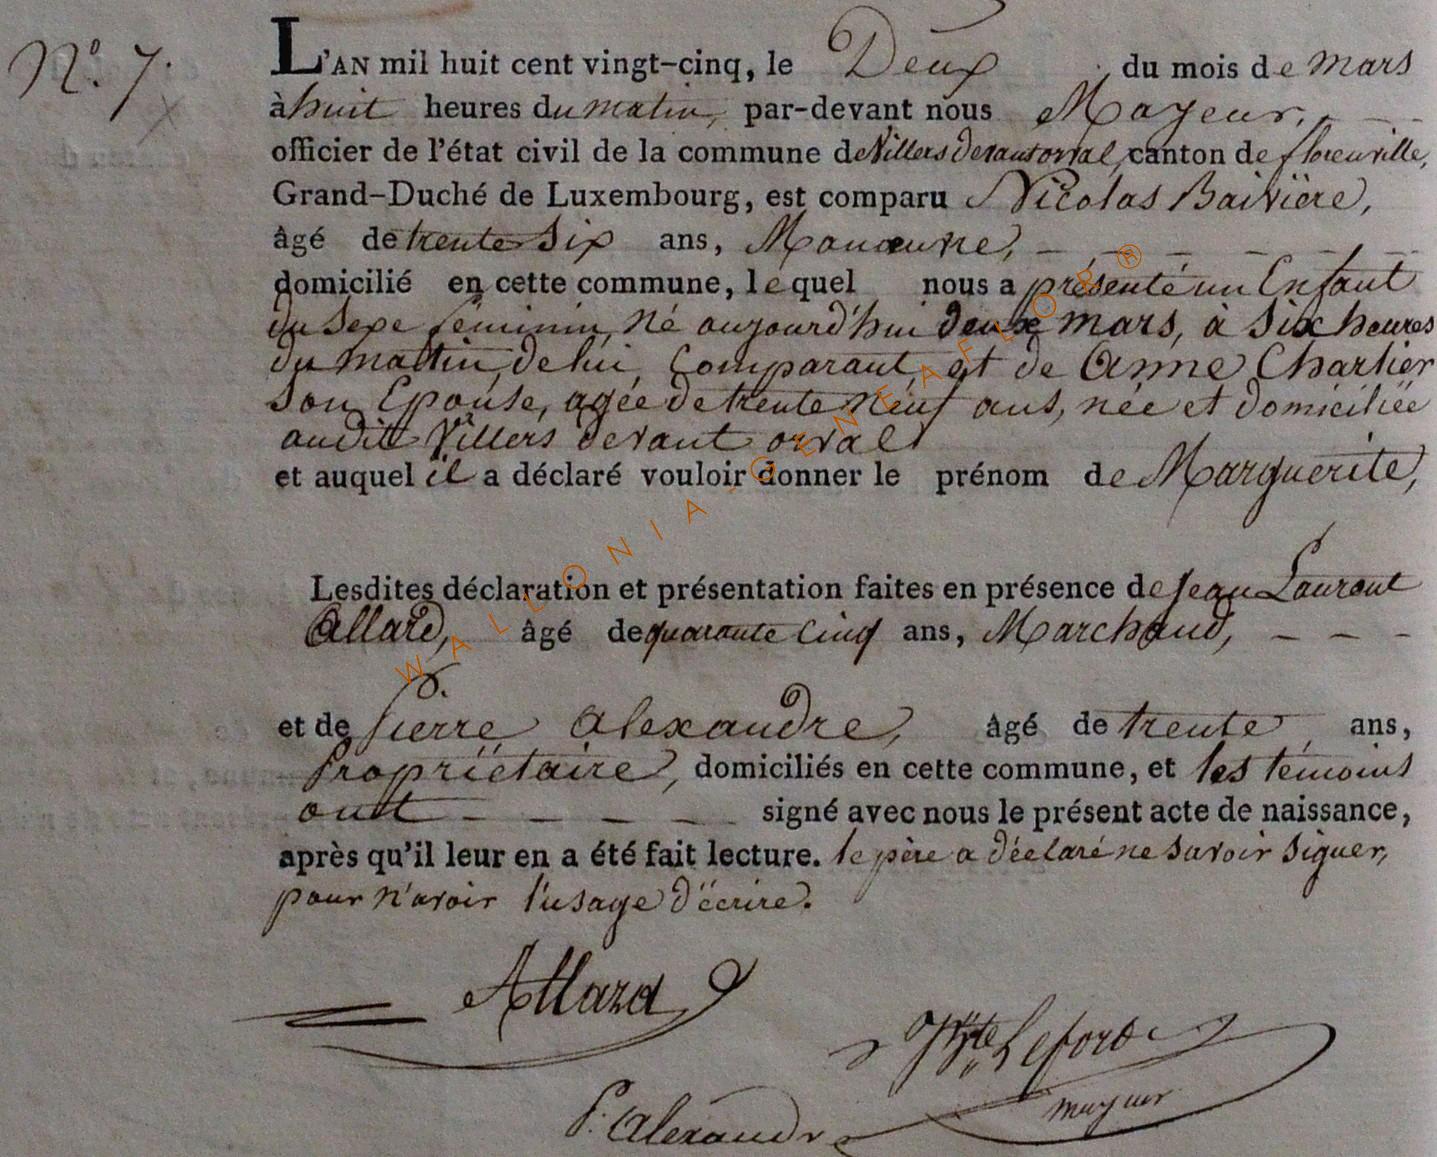 N.° 7.
L'AN mil huit cent vingt-cinq, le Deux du mois de mars
à huit heures du matin, par-devant nous Mayeur,
officier de l'état civil de la commune de Villers devant orval, canton de florenville,
Grand-Duché de Luxembourg, est comparu Nicolas Baivière,
âgé de trente Six ans, Manœuvre,
domicilié en cette commune, lequel nous a présenté un Enfant
du Sexe féminin, né aujourd'hui deux mars, à Six heures
du mattin, de lui Comparant, et de Anne Charlier
Son Epouse, agée de trente Neuf ans, née et domiciliée
audit Villers devant orval
et auquel il a déclaré vouloir donner le prénom de Marguerite,
Lesdites déclaration et présentation faites en présence de Jean Laurent
Allard, âgé de quarante Cinq ans, Marchand,
et de Pierre Alexandre, âgé de trente ans,
Propriétaire, domiciliés en cette commune, et les témoins
ont signé avec nous le présent acte de naissance,
après qu'il leur en a été fait lecture. le père a déclaré ne Savoir Signer,
pour N'avoir l'usage d'écrire.
Allard
Lefort
mayeur
P. Alexandre
WALLONIA-GENEAFLOR®